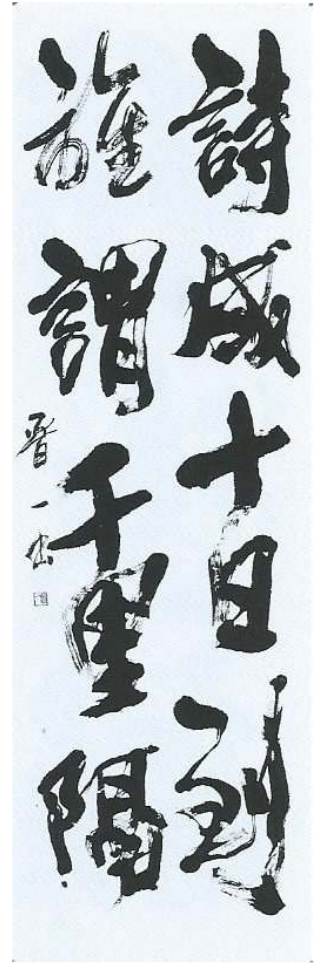 詩成十日到
誰謂千里隔
晋一書